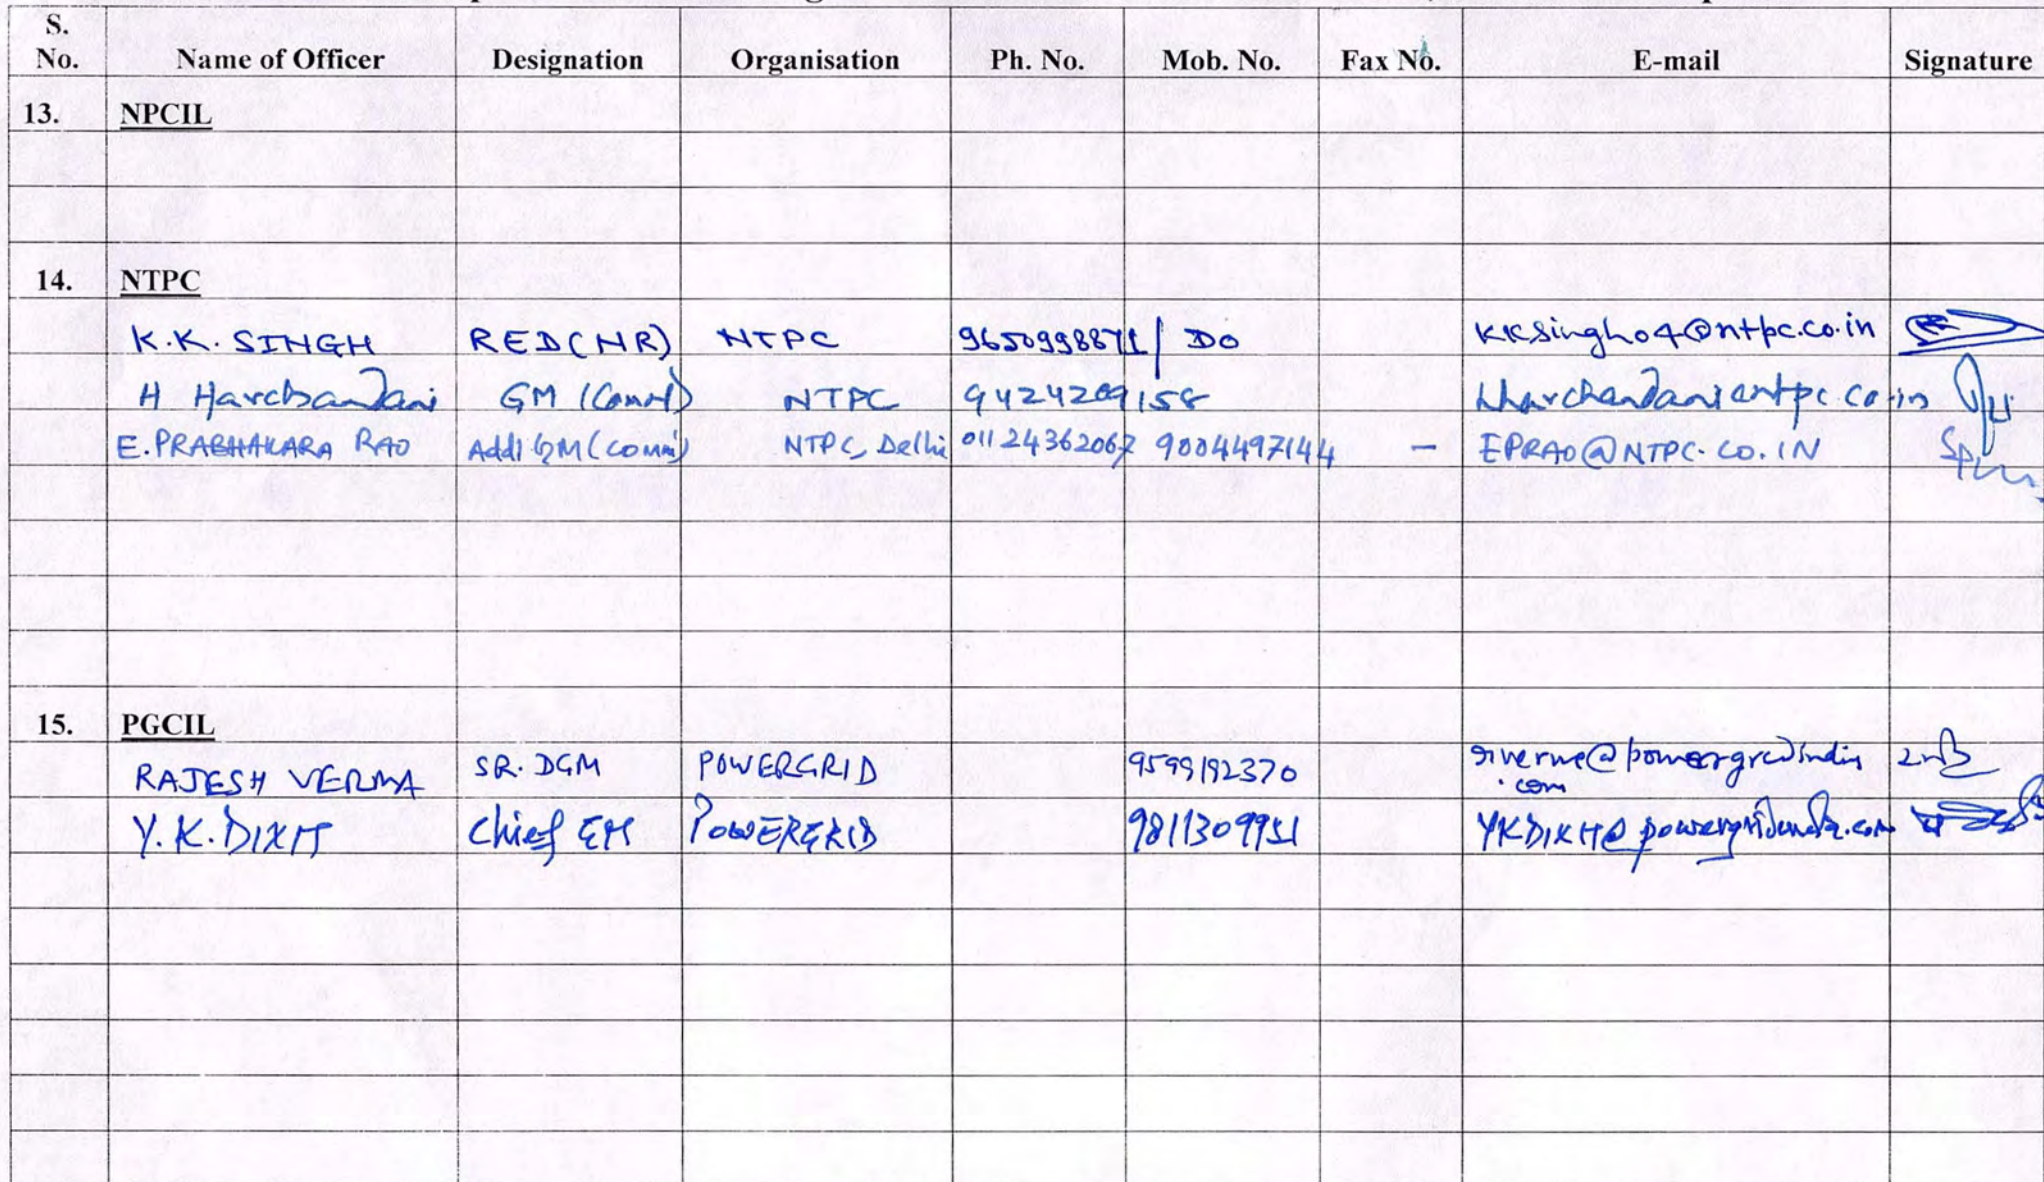 S. No. Name of Officer Designation Organisation Ph. No. Mob. No. Fax No. E-mail Signature
13. NPCIL
14. NTPC
K.K. SINGH RED(NR) NTPC 9650998871 / DO KKSingh04@ntpc.co.in
H Harchandani GM (Comml) NTPC 9424209158 hharchandani@ntpc.co.in
E. PRABHAKARA RAO Addl GM (Comml) NTPC, Delhi 01124362067 9004497144 - EPRAO@NTPC.CO.IN
15. PGCIL
RAJESH VERMA SR. DGM POWERGRID 9599192370 rverma@powergridindia
.com
Y.K. DIXIT Chief GM POWERGRID 9811309951 YKDIXIT@powergridindia.com